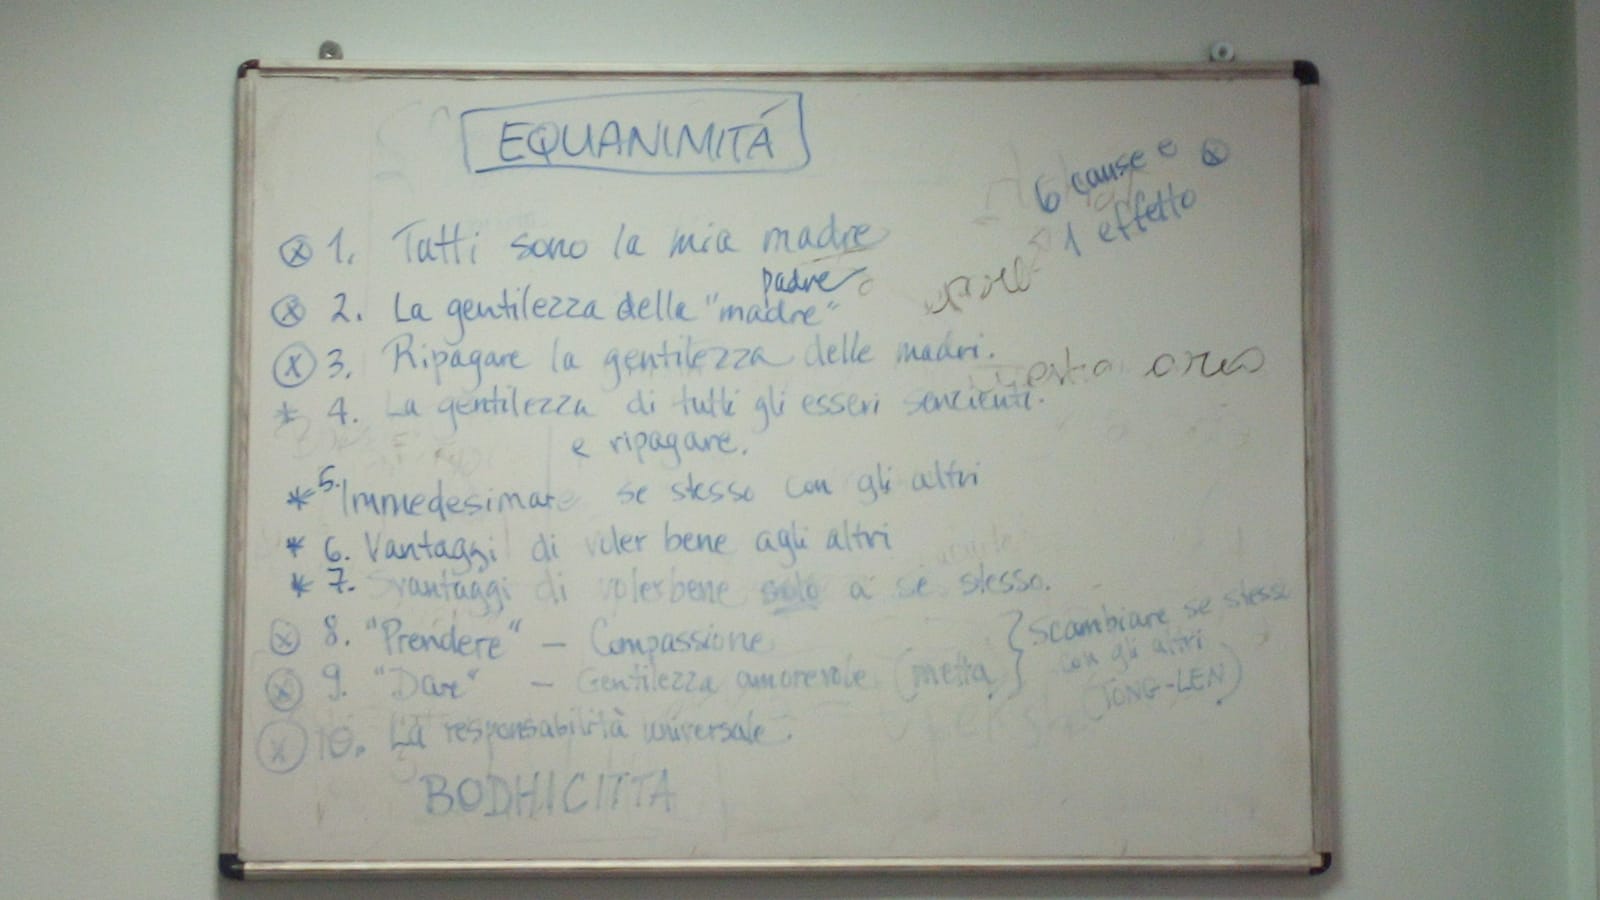 EQUANIMITÁ
6 cause e ⊗
1 effetto
⊗ 1. Tutti sono la mia madre
padre
⊗ 2. La gentilezza della "madre"
⊗ 3. Ripagare la gentilezza delle madri.
* 4. La gentilezza di tutti gli esseri senzienti.
e ripagare.
* 5. Immedesimare se stesso con gli altri
* 6. Vantaggi di voler bene agli altri
* 7. Svantaggi di volerbene solo a se stesso.
⊗ 8. "Prendere" - Compassione
⊗ 9. "Dare" - Gentilezza amorevole (metta)
} Scambiare se stessi
con gli altri
(TONG-LEN)
⊗ 10. La responsabilità universale.
BODHICITTA